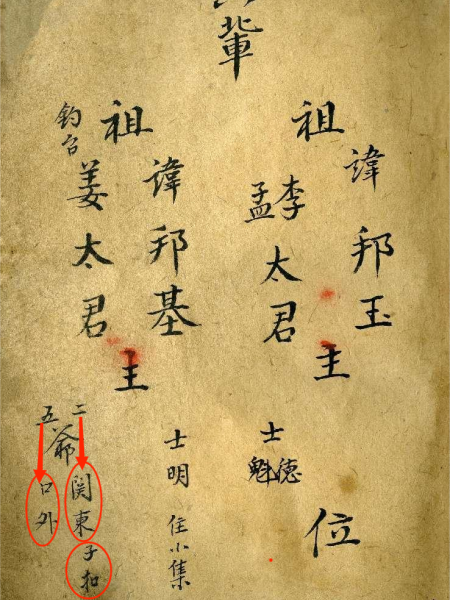 輩
諱邦玉
祖
主
位
李
孟
太君
士
德
魁
諱邦基
祖
主
士明 住小集
釣台
姜太君
二
五
爺
関東子扣
口外